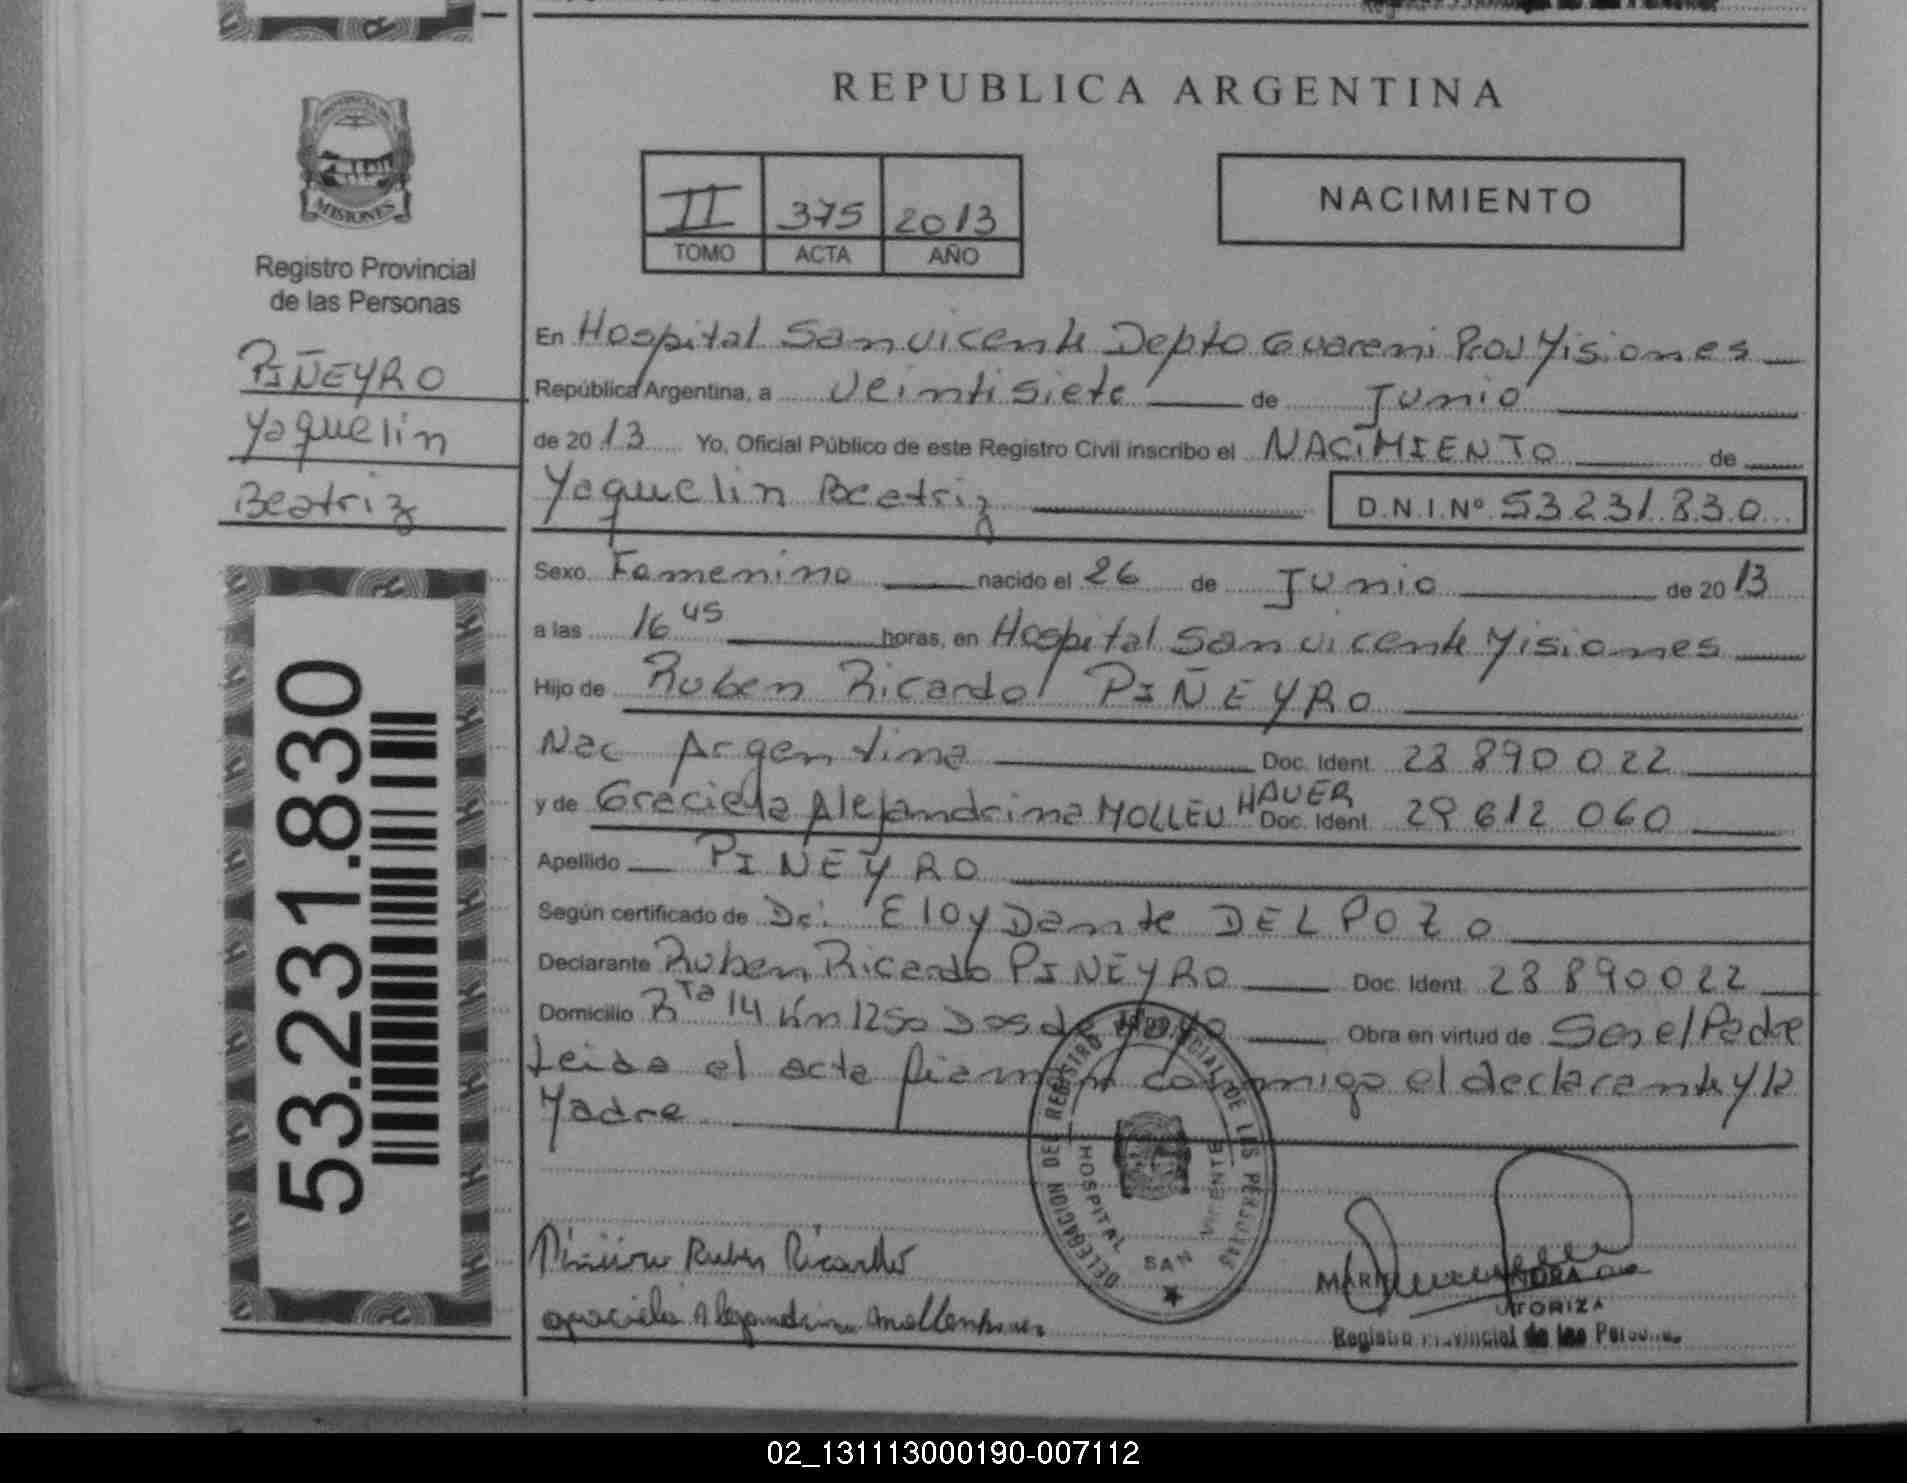 REPUBLICA ARGENTINA
MISIONES
Registro Provincial
de las Personas
PIÑEYRO
Yaquelin
Beatriz
53.231.830
II 375 2013
TOMO ACTA AÑO
NACIMIENTO
En Hospital San vicente Depto Guarani Prov Misiones
República Argentina, a veintisiete de Junio
de 2013 Yo, Oficial Público de este Registro Civil inscribo el NACIMIENTO de
Yaquelin Beatriz D.N.I.Nº 53231.830
Sexo Femenino nacido el 26 de Junio de 2013
a las 16 45 horas, en Hospital San vicente Misiones
Hijo de Ruben Ricardo PIÑEYRO
Nac Argentina Doc. Ident. 28 890 022
y de Graciela Alejandrina MOLLEN HAUER Doc. Ident. 29 612 060
Apellido PIÑEYRO
Según certificado de Dr. Eloy Dante DEL POZO
Declarante Ruben Ricardo PIÑEYRO Doc. Ident. 28 890022
Domicilio Rta 14 Km 1250 Dos de Mayo Obra en virtud de Ser el Padre
Leida el acta firman conmigo el declarante y la
Madre
DELEGACION DEL REGISTRO PROVINCIAL DE LAS PERSONAS
HOSPITAL SAN VICENTE
Piñeiro Ruben Ricardo
Graciela Alejandrina Mollenhauer
Registro Provincial de las Personas
02_131113000190-007112